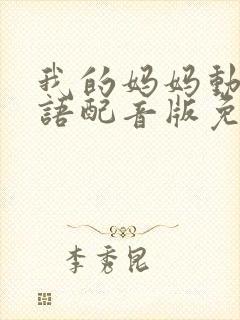 我的妈妈動
語配音版免
李秀昆